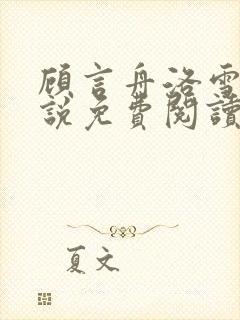 顾言舟洛雪
說免費閱讀
夏文